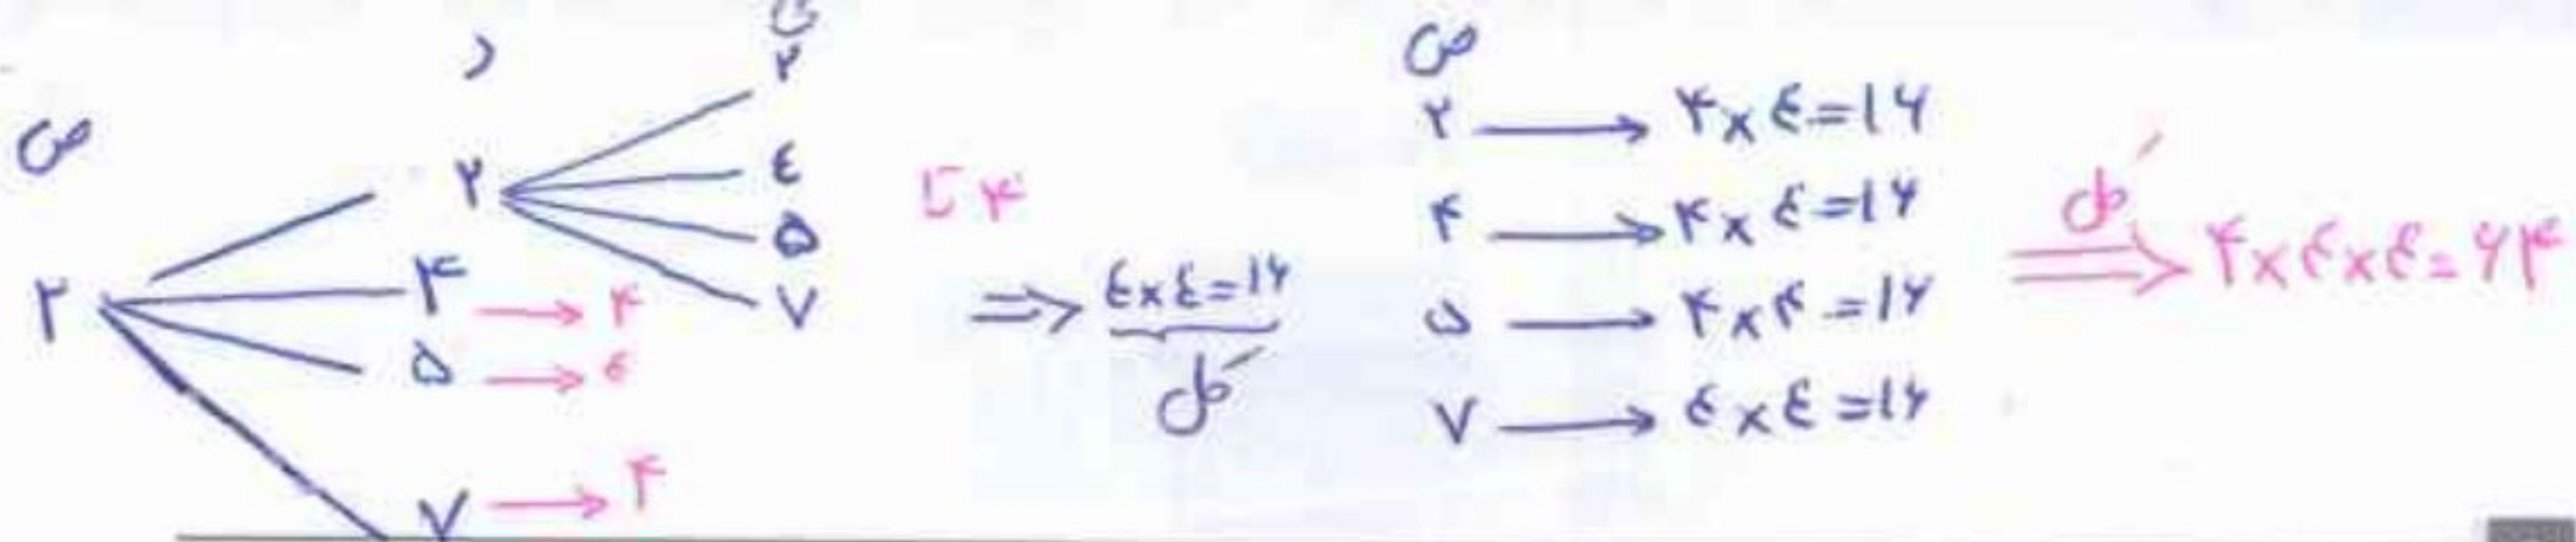 ص د ی
۲ ۲ ۲
۴ ۴
۵ ۵
۷ ۷
→ ۴
→ ۴
→ ۴
تا ۴
⇒ ۴×۴=۱۶
کل
ص
۲ → ۴×۴=۱۶
۴ → ۴×۴=۱۶
۵ → ۴×۴=۱۶
۷ → ۴×۴=۱۶
کل ⇒ ۴×۴×۴=۶۴